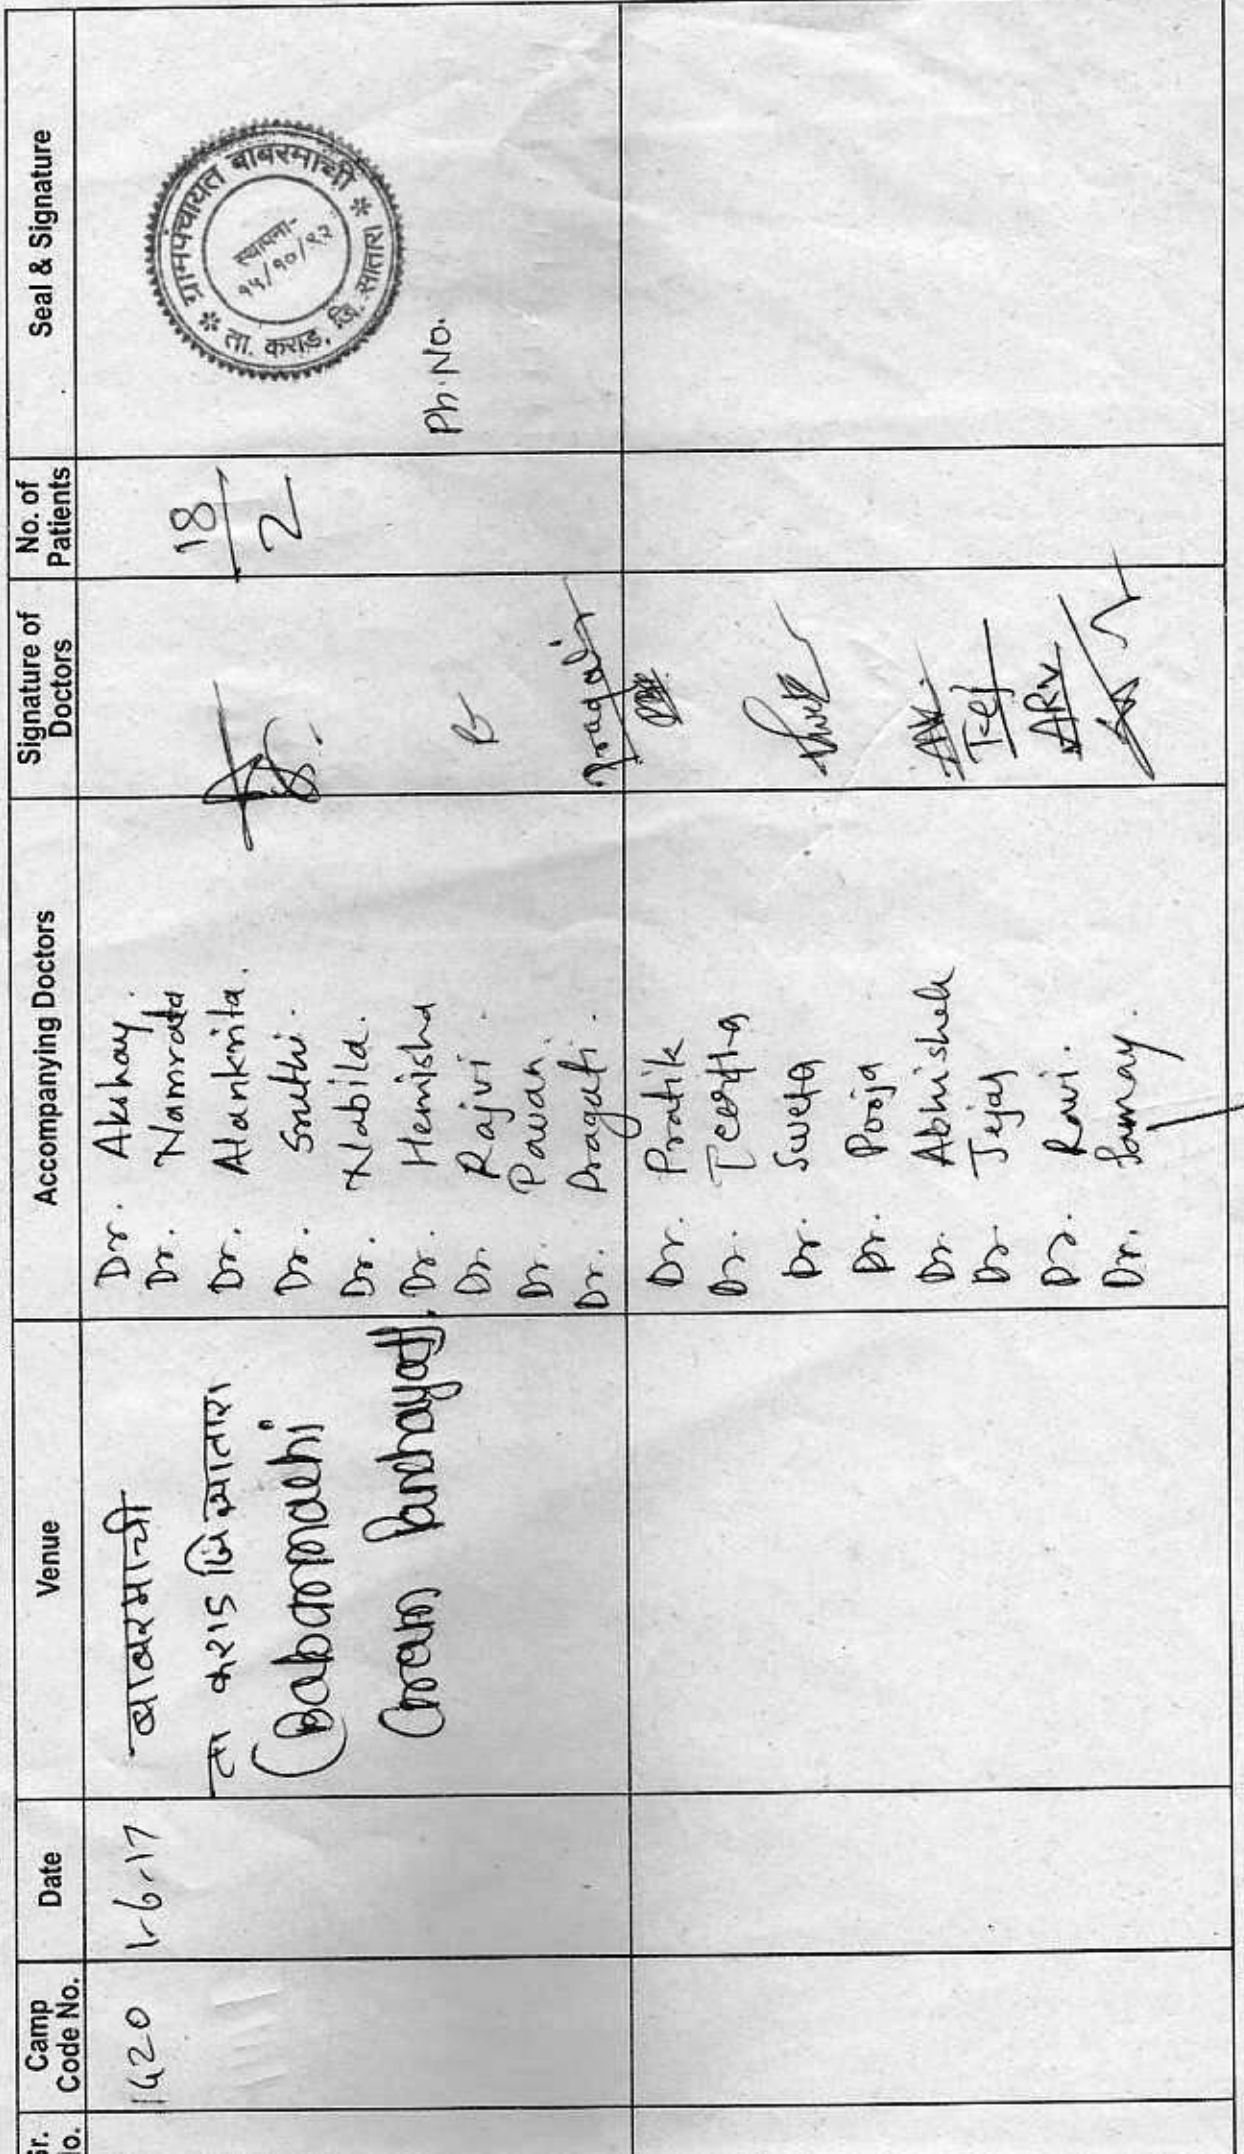 Camp Code No.
Date
Venue
Accompanying Doctors
Signature of Doctors
No. of Patients
Seal & Signature
1420
1-6-17
बाबरमाची
ता कराड जि सातारा
(Babarmachi
Gram Panchayat)
Dr. Akshay.
Dr. Namrata
Dr. Alankrita.
Dr. Sruthi.
Dr. Nabila.
Dr. Hemisha
Dr. Rajvi.
Dr. Pavan.
Dr. Pragati.
Pragati
18
2
ग्रामपंचायत बाबरमाची
स्थापना-
१५/१०/९२
ता. कराड, जि. सातारा
Ph. No.
Dr. Pratik
Dr. Teertha
Dr. Sweta
Dr. Pooja
Dr. Abhishek
Dr. Tejas
Dr. Ravi.
Dr. Samay.
AK.
Tej
ARV